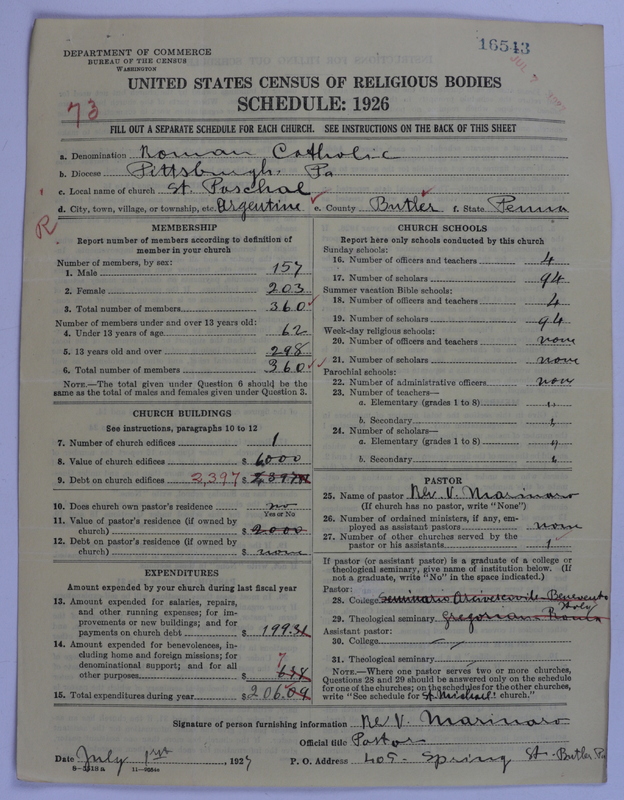 16543
DEPARTMENT OF COMMERCE
BUREAU OF THE CENSUS
WASHINGTON
UNITED STATES CENSUS OF RELIGIOUS BODIES
SCHEDULE: 1926
73
FILL OUT A SEPARATE SCHEDULE FOR EACH CHURCH. SEE INSTRUCTIONS ON THE BACK OF THIS SHEET
a. Denomination Roman Catholic
b. Diocese Pittsburgh, Pa
c. Local name of church St. Paschal
d. City, town, village, or township, etc. Argentine e. County Butler f. State Penna
R
MEMBERSHIP
Report number of members according to definition of member in your church
Number of members, by sex:
1. Male 157
2. Female 203
3. Total number of members 360
Number of members under and over 13 years old:
4. Under 13 years of age 62
5. 13 years old and over 298
6. Total number of members 360
NOTE.—The total given under Question 6 should be the
same as the total of males and females given under Question 3.
CHURCH BUILDINGS
See instructions, paragraphs 10 to 12
7. Number of church edifices 1
8. Value of church edifices $ 6000
9. Debt on church edifices 2,397 $
10. Does church own pastor's residence no
Yes or No
11. Value of pastor's residence (if owned by
church) $ 2000
12. Debt on pastor's residence (if owned by
church) $ none
EXPENDITURES
Amount expended by your church during last fiscal year
13. Amount expended for salaries, repairs,
and other running expenses; for im-
provements or new buildings; and for
payments on church debt $ 199.31
14. Amount expended for benevolences, in-
cluding home and foreign missions; for
denominational support; and for all
other purposes 7 $
15. Total expenditures during year $ 206.09
CHURCH SCHOOLS
Report here only schools conducted by this church
Sunday schools:
16. Number of officers and teachers 4
17. Number of scholars 94
Summer vacation Bible schools:
18. Number of officers and teachers 4
19. Number of scholars 94
Week-day religious schools:
20. Number of officers and teachers none
21. Number of scholars none
Parochial schools:
22. Number of administrative officers none
23. Number of teachers—
a. Elementary (grades 1 to 8) "
b. Secondary "
24. Number of scholars—
a. Elementary (grades 1 to 8) "
b. Secondary "
PASTOR
25. Name of pastor Rev. V. Marinaro
(If church has no pastor, write "None")
26. Number of ordained ministers, if any, em-
ployed as assistant pastors none
27. Number of other churches served by the
pastor or his assistants 1
If pastor (or assistant pastor) is a graduate of a college or
theological seminary, give name of institution below. (If
not a graduate, write "No" in the space indicated.)
Pastor:
28. College Seminario Arcivescovile Benevento
Italy
29. Theological seminary Gregorian Roma
Assistant pastor:
30. College
31. Theological seminary
NOTE.—Where one pastor serves two or more churches,
Questions 28 and 29 should be answered only on the schedule
for one of the churches; on the schedules for the other churches,
write "See schedule for St. Michael church."
Signature of person furnishing information Rev V. Marinaro
Official title Pastor
Date July 1st, 1927 P. O. Address 405 Spring St. Butler Pa
8-5518a 11-9054a